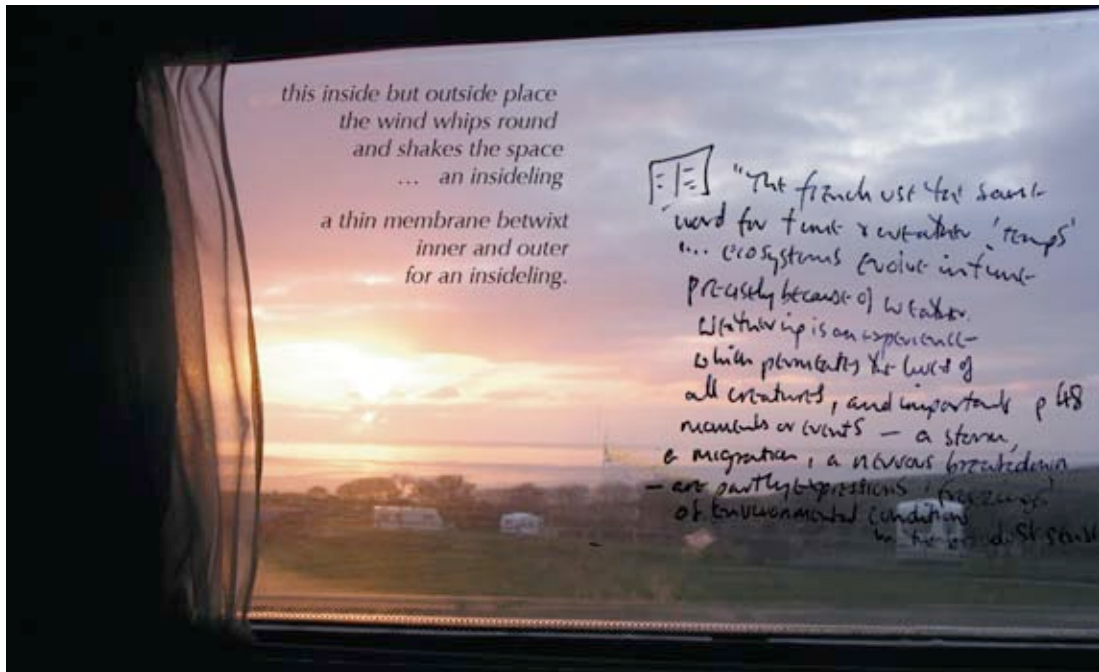 this inside but outside place
the wind whips round
and shakes the space
... an insideling
a thin membrane betwixt
inner and outer
for an insideling.
"The french use the same
word for time & weather 'temps'
"... ecosystems evolve in time
precisely because of weather.
Weathering is an experience
which permeates the lives of
all creatures, and important p 48
moments or events — a storm,
a migration, a nervous breakdown
— are partly expressions 'freezings'
of Environmental condition
in the broadest sense